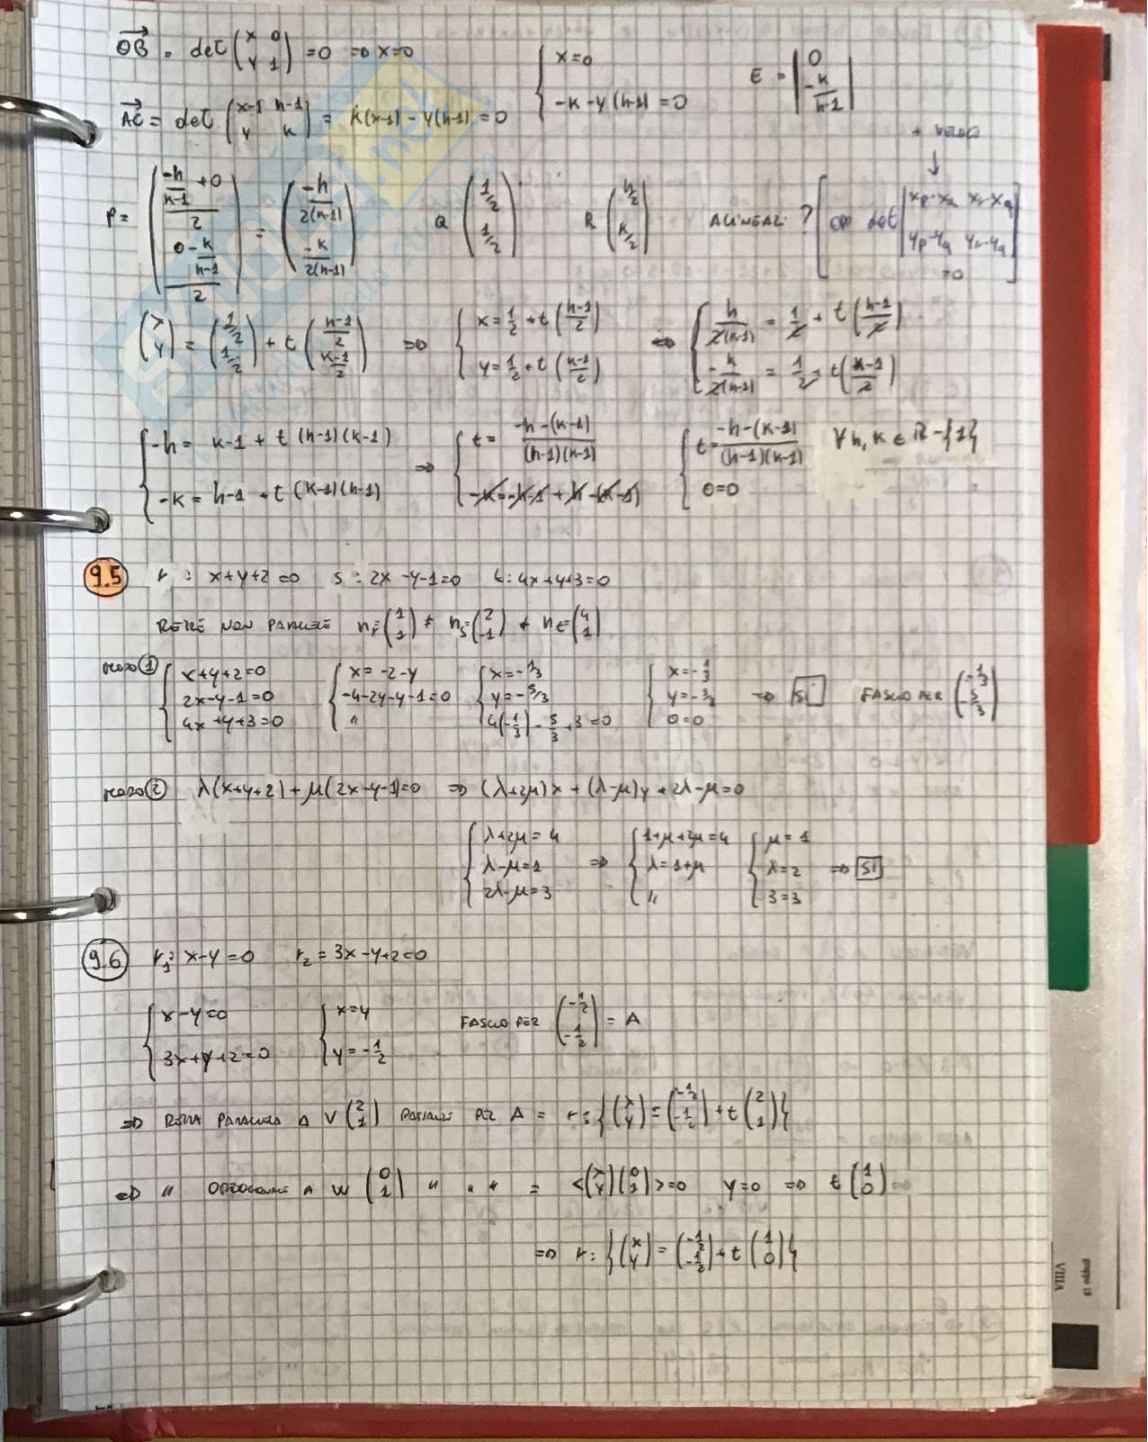 OB = det (x 0 / y 1) = 0 ⇒ x=0 { x=0 / -k-y(h-1)=0 E = | 0 / -k/(h-1) |
AC = det (x-1 h-1 / y k) = k(x-1) - y(h-1) = 0
P = ( (-h/(k-1) + 0)/2 / (0 - k/(h-1))/2 ) = ( -h/2(k-1) / -k/2(h-1) ) Q ( 1/2 / 1/2 ) R ( h/2 / k/2 ) ALINEAT. ? [ OP det | xp-xq xr-xq / yp-yq yr-yq | =0 ]
(x / y) = (1/2 / 1/2) + t ( (h-1)/2 / (k-1)/2 ) ⇒ { x = 1/2 + t ((h-1)/2) / y = 1/2 + t ((k-1)/2) ⇒ { -h/2(k-1) = 1/2 + t ((h-1)/2) / -k/2(h-1) = 1/2 + t((k-1)/2)
{ -h = k-1 + t (h-1)(k-1) / -k = h-1 + t (k-1)(h-1) ⇒ { t = (-h-(k-1))/((h-1)(k-1)) / -k = h-1 + -h-(k-1) { t = (-h-(k-1))/((h-1)(k-1)) / 0=0 ∀ h, k ∈ R - {1}
9.5 r : x+y+2=0 s : 2x-y-1=0 t: 4x+y+3=0
RETTE NON PARALLELE nr=(1 / 1) ≠ ns=(2 / -1) ≠ nt=(4 / 1)
MODO 1 { x+y+2=0 / 2x-y-1=0 / 4x+y+3=0 { x=-2-y / -4-2y-y-1=0 / " { x=-1/3 / y=-5/3 / 4(-1/3)-5/3+3=0 { x=-1/3 / y=-5/3 / 0=0 ⇒ SI FASCIO PER (-1/3 / -5/3)
MODO 2 λ(x+y+2) + μ(2x-y-1)=0 ⇒ (λ+2μ)x + (λ-μ)y + 2λ-μ=0
{ λ+2μ=4 / λ-μ=1 / 2λ-μ=3 ⇒ { 1+μ+2μ=4 / λ=1+μ / " { μ=1 / λ=2 / 3=3 ⇒ SI
9.6 r1: x-y=0 r2 = 3x-y+2=0
{ x-y=0 / 3x+y+2=0 { x=y / y=-1/2 FASCIO PER (-1/2 / -1/2) = A
⇒ RETTA PARALLELA A V (2 / 1) PASSANTE PER A = r: { (x / y) = (-1/2 / -1/2) + t (2 / 1) }
⇒ " ORTOGONALE A W (0 / 1) " " " = <(x / y)(0 / 1)>=0 y=0 ⇒ t (1 / 0)
⇒ r: { (x / y) = (-1/2 / -1/2) + t (1 / 0) }
VIIIA